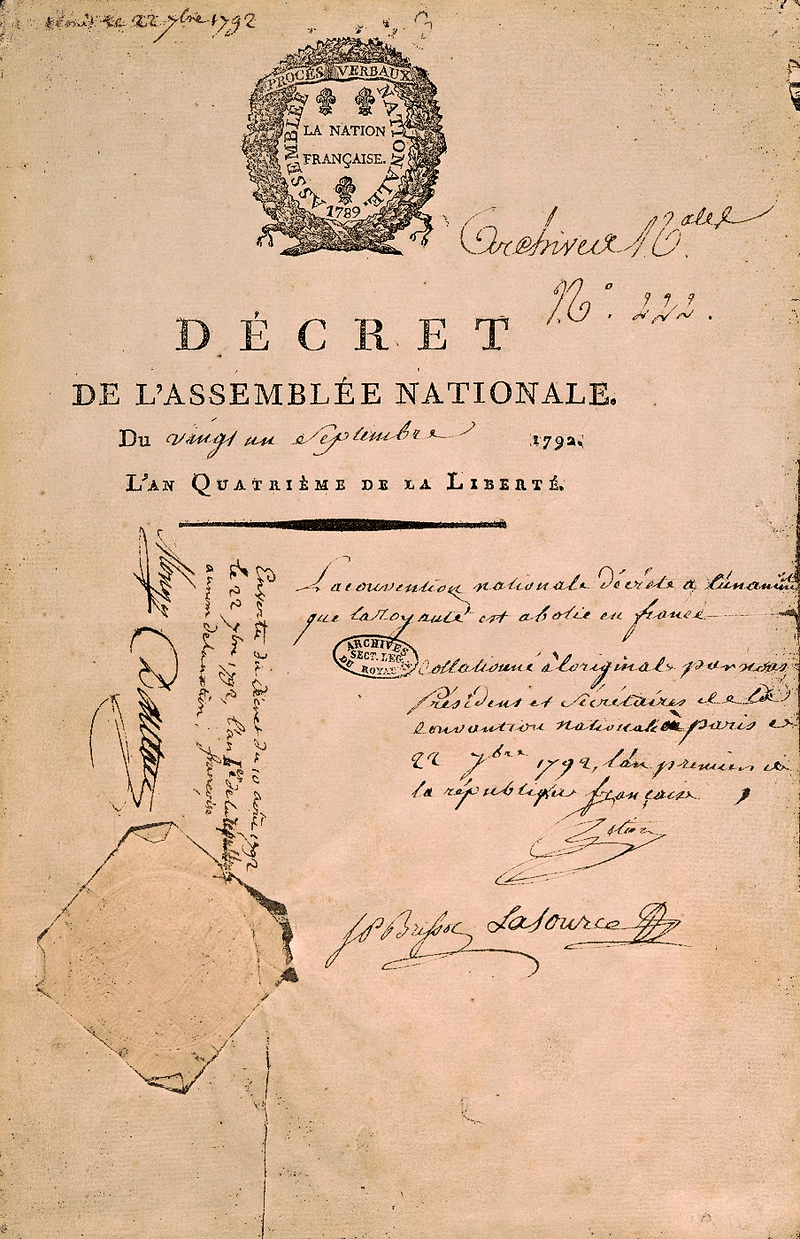 le 22 7bre 1792
PROCÈS VERBAUX
ASSEMBLÉE NATIONALE.
LA NATION
FRANÇAISE.
1789
Archives Nales
N° 222.
DÉCRET
DE L'ASSEMBLÉE NATIONALE.
Du vingt un Septembre 1792.
L'AN QUATRIÈME DE LA LIBERTÉ.
La convention nationale décrète à l'unanimité
que la Royauté est abolie en france
ARCHIVES
SECT. LEG.
DU ROYAU.
Collationné à l'original par nous
Président et Sécrétaires de la
convention nationale à paris ce
22 7bre 1792, l'an premier de
la république françoise
Petion
JP Brissot Lasource
En vertu du décret du 10 août 1792
le 22 7bre 1792, l'an 1er de la république
au nom de la nation. françoise
Monge
Danton